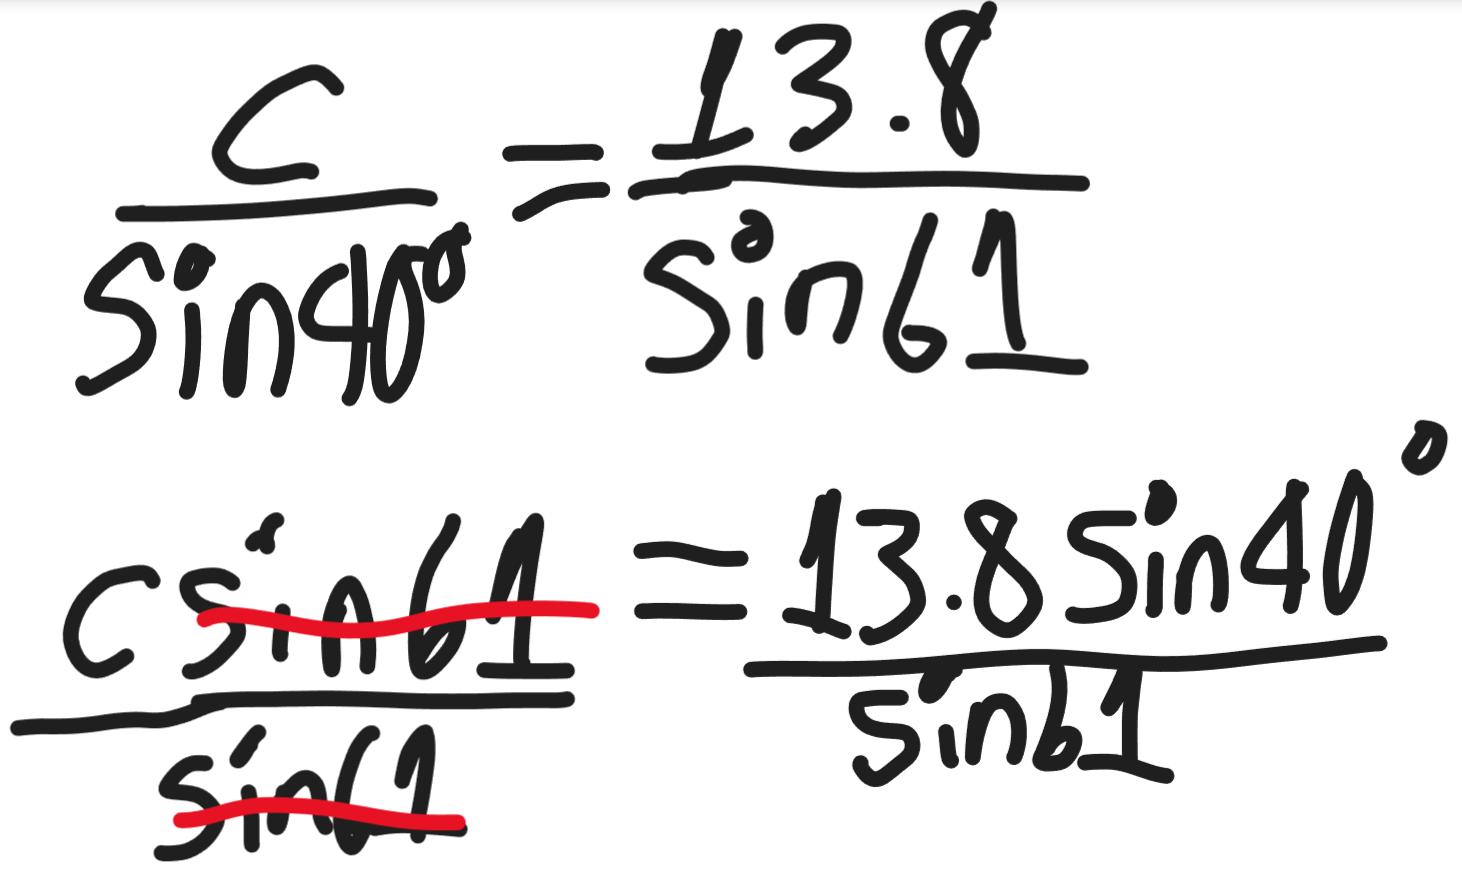 c/sin40° = 13.8/sin61
c sin61/sin61 = 13.8 sin40°/sin61